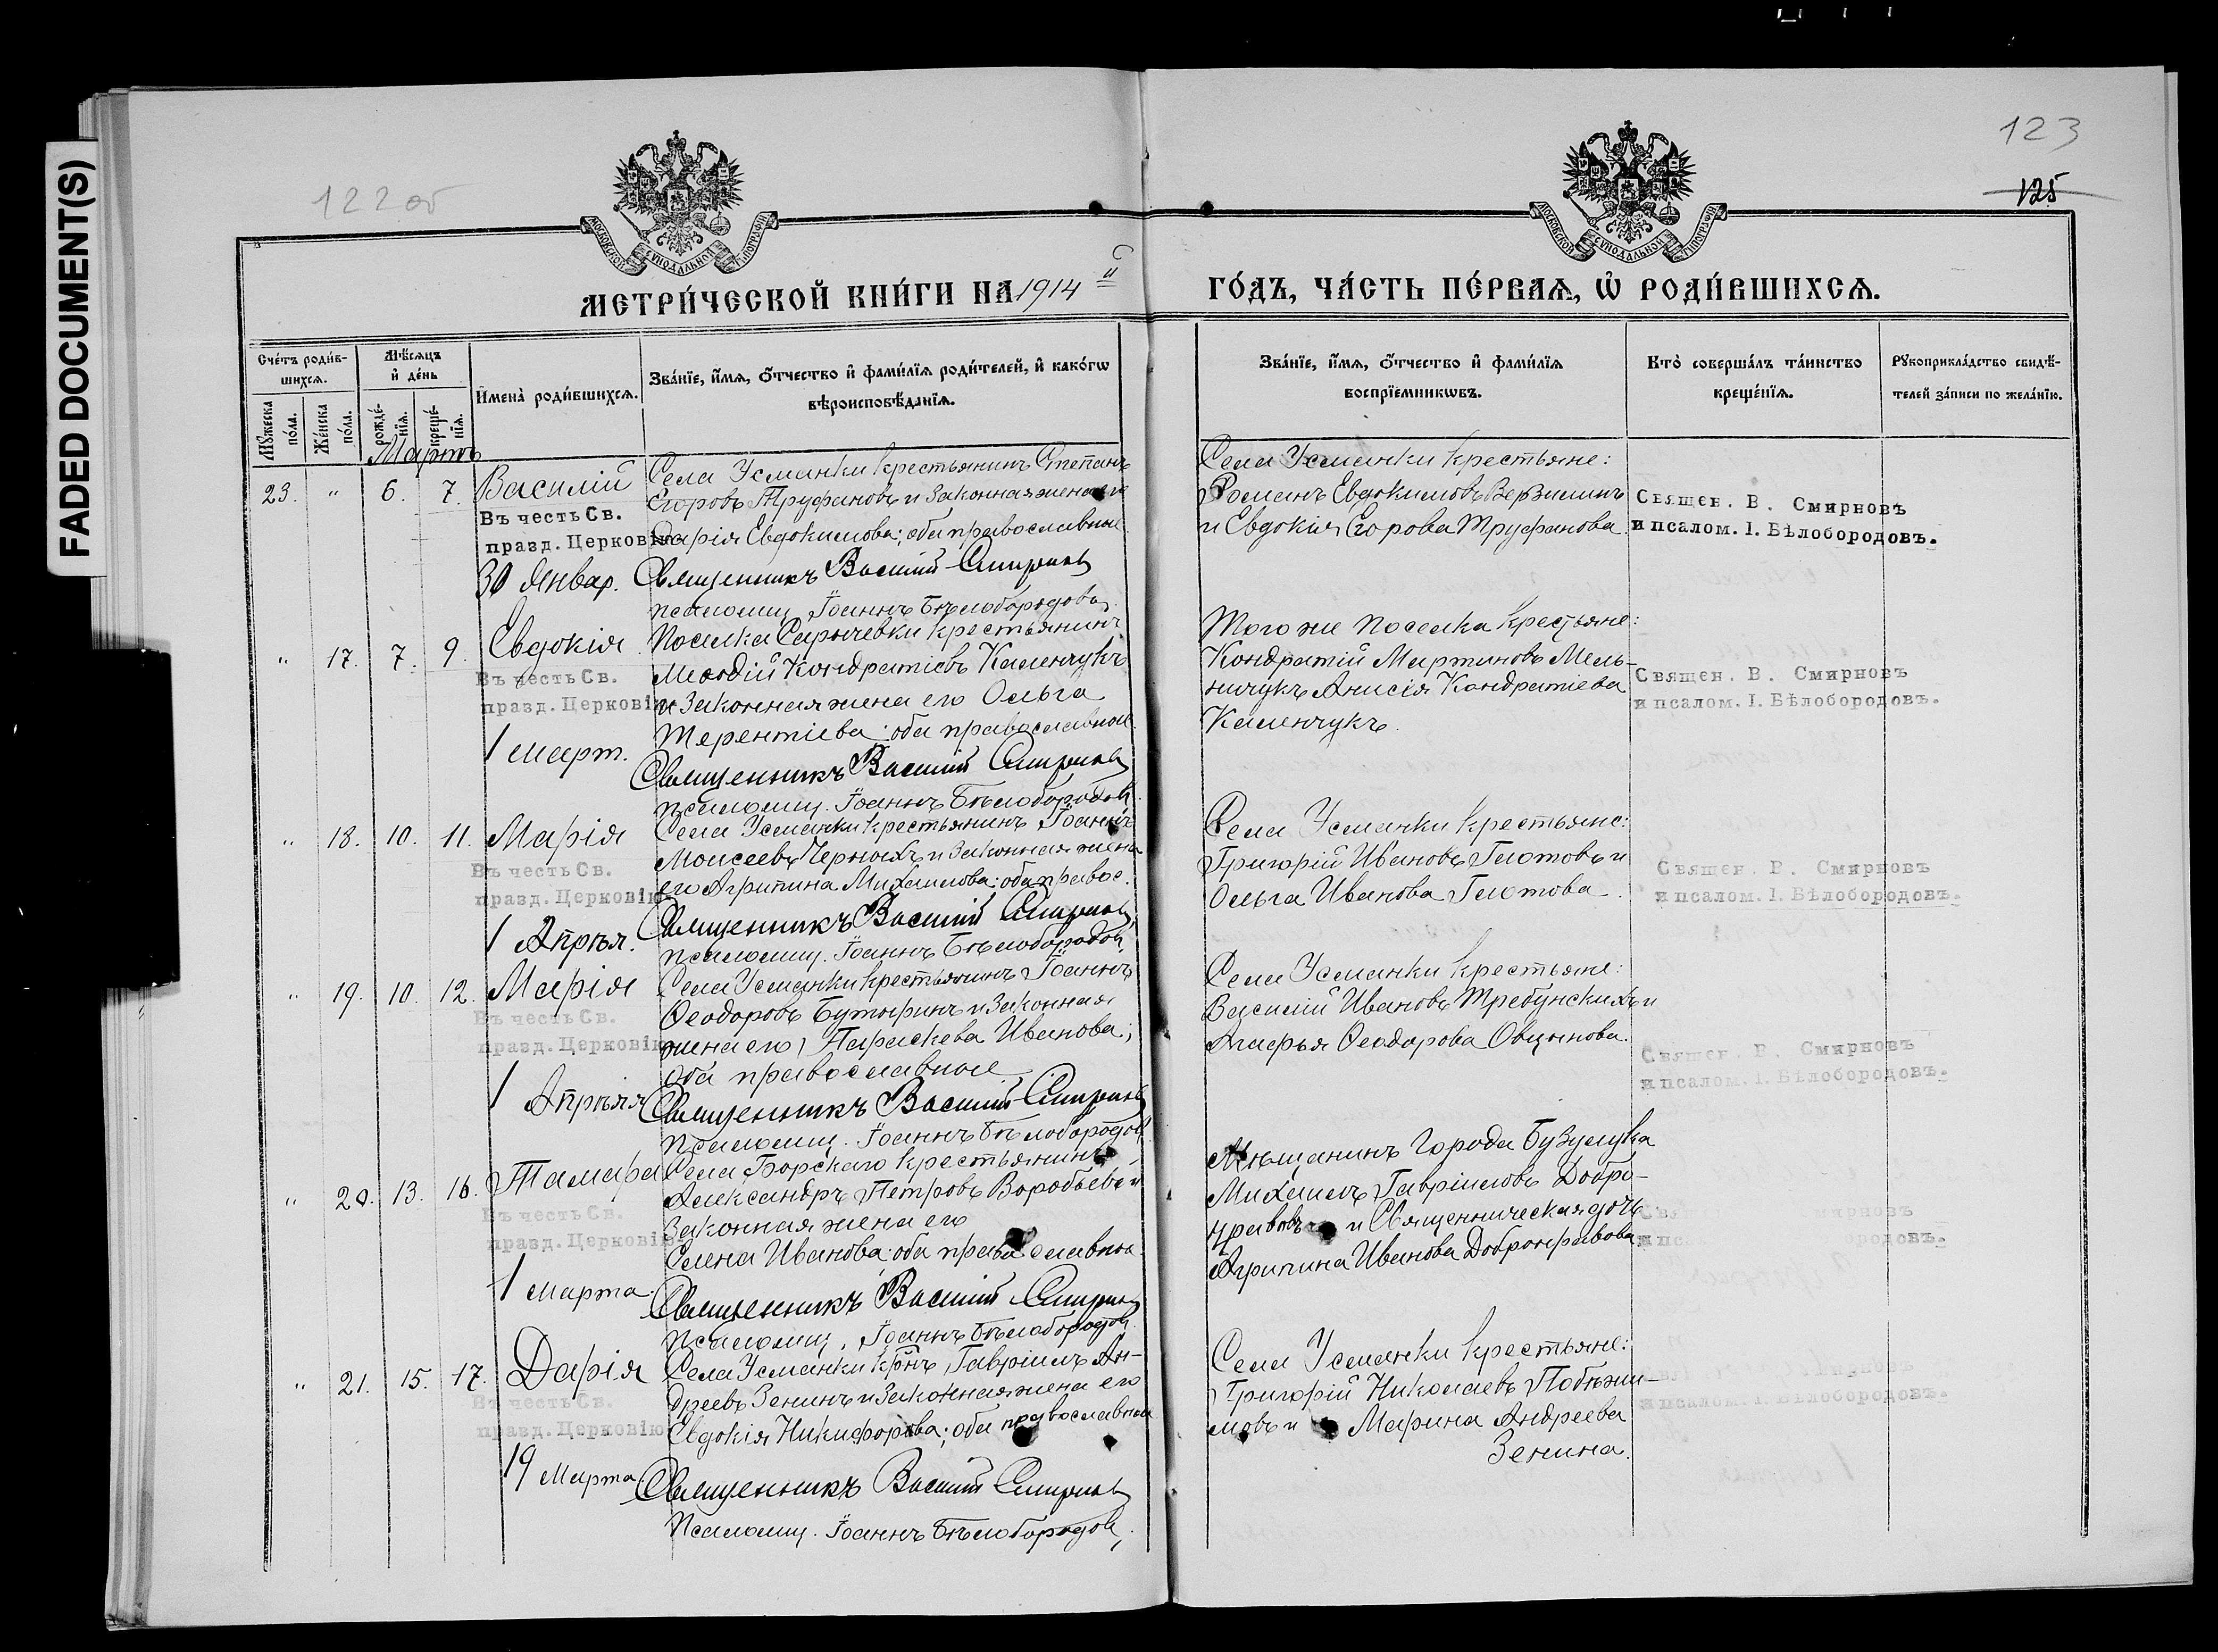 FADED DOCUMENT(S)
122об
123
125
МОСКОВСКОЙ СѴНОДАЛЬНОЙ ТИПОГРАФІИ
МОСКОВСКОЙ СѴНОДАЛЬНОЙ ТИПОГРАФІИ
МЕТРИ́ЧЕСКОЙ КНИ́ГИ НА 1914 й
ГО́ДЪ, ЧА́СТЬ ПЕ́РВАѦ, Ѡ҆ РОДИ́ВШИХСѦ.
Сче́тъ роди́в-
шихсѧ.
Мѣ́сѧцъ
и҆ де́нь
Мꙋ́жеска
по́ла.
Же́нска
по́ла.
рожде́-
нїѧ.
креще́-
нїѧ.
И҆мена̀ роди́вшихсѧ.
Зва́нїе, и҆́мѧ, ѻ҆́тчество и҆ фами́лїѧ роди́телей, и҆ како́гѡ
вѣроисповѣ́данїѧ.
Зва́нїе, и҆́мѧ, ѻ҆́тчество и҆ фами́лїѧ
воспрїе́мникѡвъ.
Кто̀ соверша́лъ та́инство
креще́нїѧ.
Рꙋкоприкла́дство свидѣ́-
телей за́писи по жела́нїю.
Мартъ
23. " 6. 7. Василій
Въ честь Св.
празд. Церковію
30 Январ.
Села Усманки крестьянинъ Степанъ
Егоровъ Труфановъ и законная жена его
Дарія Евдокимова; оба православные
Священникъ Василій Смирновъ
псаломщ. Іоаннъ Бѣлобородовъ
Села Усманки крестьяне:
Романъ Евдокимовъ Верзилинъ
и Евдокія Егорова Труфанова
Священ. В. Смирновъ
и псалом. І. Бѣлобородовъ.
" 17. 7. 9. Евдокія
Въ честь Св.
празд. Церковію
1 март.
Поселка Сарычевки крестьянинъ
Меѳодій Кондратіевъ Каленчукъ
и законная жена его Ольга
Терентіева; оба православные
Священникъ Василій Смирновъ
псаломщ. Іоаннъ Бѣлобородов
Того же поселка крестьяне:
Кондратій Мартиновъ Мель-
ничукъ Анисія Кондратіева
Каленчукъ.
Священ. В. Смирновъ
и псалом. І. Бѣлобородовъ.
" 18. 10. 11. Марія
Въ честь Св.
празд. Церковію
1 Апрѣл.
Села Усманки крестьянинъ Іоаннъ
Моисеевъ Черныхъ и законная жена
его Агрипина Михаилова; оба правос.
Священникъ Василій Смирновъ
псаломщ. Іоаннъ Бѣлобородов
Села Усманки крестьяне:
Григорій Ивановъ Глотовъ и
Ольга Иванова Глотова
Священ. В. Смирновъ
и псалом. І. Бѣлобородовъ.
" 19. 10. 12. Марія
Въ честь Св.
празд. Церковію
1 Апрѣля
Села Усманки крестьянинъ Іоаннъ
Ѳеодоровъ Бутыринъ и законная
жена его Параскева Иванова;
оба православные
Священникъ Василій Смирновъ
Псаломщ. Іоаннъ Бѣлобородов
Села Усманки крестьяне:
Василій Ивановъ Требунскихъ и
Агафья Ѳеодорова Овцынова.
Священ. В. Смирновъ
и псалом. І. Бѣлобородовъ.
" 20. 13. 16. Тамара
Въ честь Св.
празд. Церковію
1 марта
Села Борскаго крестьянинъ
Александръ Петровъ Воробьевъ и
законная жена его
Елена Иванова; оба православные
Священникъ Василій Смирновъ
Псаломщ. Іоаннъ Бѣлобородов
Мѣщанинъ города Бузулука
Михаилъ Гавріиловъ Добро-
нравовъ и Священническая дочь
Агрипина Иванова Добронравова
" 21. 15. 17. Дарія
Въ честь Св.
празд. Церковію
19 Марта
Села Усманки кр-нъ Гавріилъ Ан-
дреевъ Зенинъ и законная жена его
Евдокія Никифорова; оба православные
Священникъ Василій Смирновъ
Псаломщ. Іоаннъ Бѣлобородов
Села Усманки крестьяне:
Григорій Николаевъ Побѣжи-
мовъ и Марина Андреева
Зенина.
и псалом. І. Бѣлобородовъ.